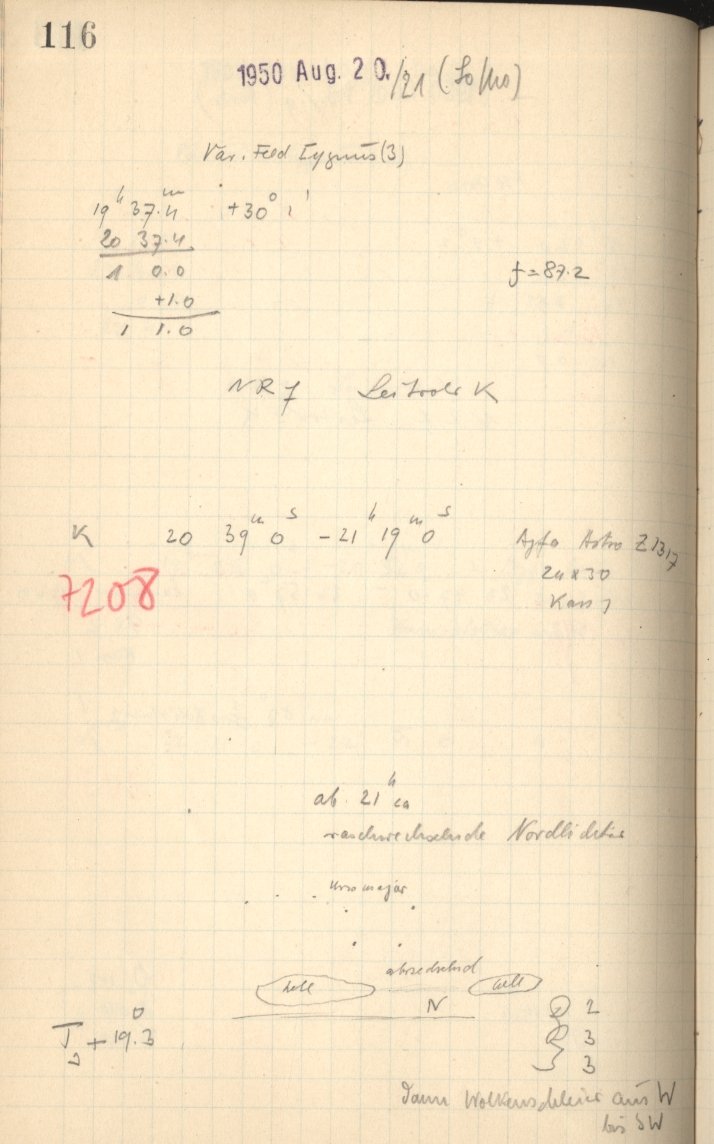 116
1950 Aug. 20./21 (So/Mo)
Var. Feld Cygnus (3)
19ʰ 37.4ᵐ +30° 1'
20 37.4
1 0.0
f=87.2
+1.0
1 1.0
NR 7 Leitrohr K
K 20 39ᵐ 0ˢ – 21ʰ 19ᵐ 0ˢ Agfa Astro Z 1317
7208
24 x 30
Kass 1
ab 21ʰ ca
raschwechselnde Nordlichter
Ursa major
abwechselnd
hell hell
N
2
T +19.3°
3
3
dann Wolkenschleier aus W
bis SW